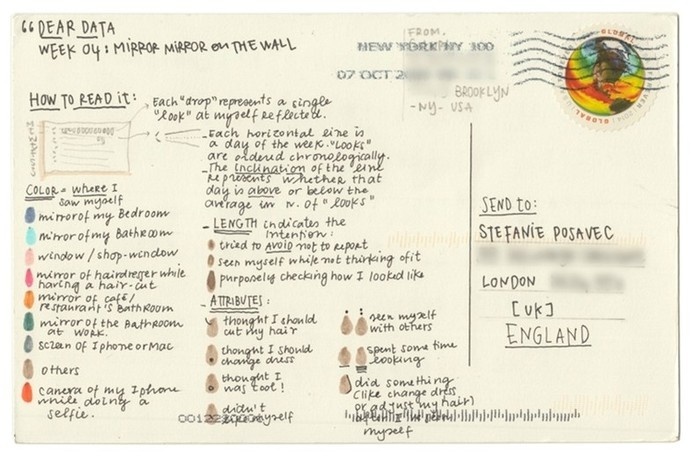 "DEAR DATA
WEEK 04: MIRROR MIRROR on THE WALL
FROM.
NEW YORK NY 100
07 OCT 2
BROOKLYN
-NY- USA
GLOBAL
FOREVER
GLOBAL
HOW TO READ it:
Each "drop" represents a single
"look" at myself reflected.
- Each horizontal line is
a day of the week. "Looks"
are ordered chronologically.
- The inclination of the line
represents whether that
day is above or below the
average in n. of "looks"
COLOR = where I
saw myself
mirror of my Bedroom
mirror of my Bathroom
window / shop-window
mirror of hairdresser while
having a hair-cut
mirror of café/
restaurant's Bathroom
mirror of the Bathroom
at work.
screen of Iphone or Mac
others
camera of my Iphone
while doing a
selfie.
- LENGTH indicates the
Intention:
tried to AVOID not to report
seen myself while not thinking of it
purposely checking how I looked like
- ATTRIBUTES:
thought I should
cut my hair
thought I should
change dress
thought I
was cool!
didn't
myself
seen myself
with others
spent some time
looking
did something
(like change dress
or adjust my hair)
myself
SEND TO:
STEFANIE POSAVEC
LONDON
[UK]
ENGLAND